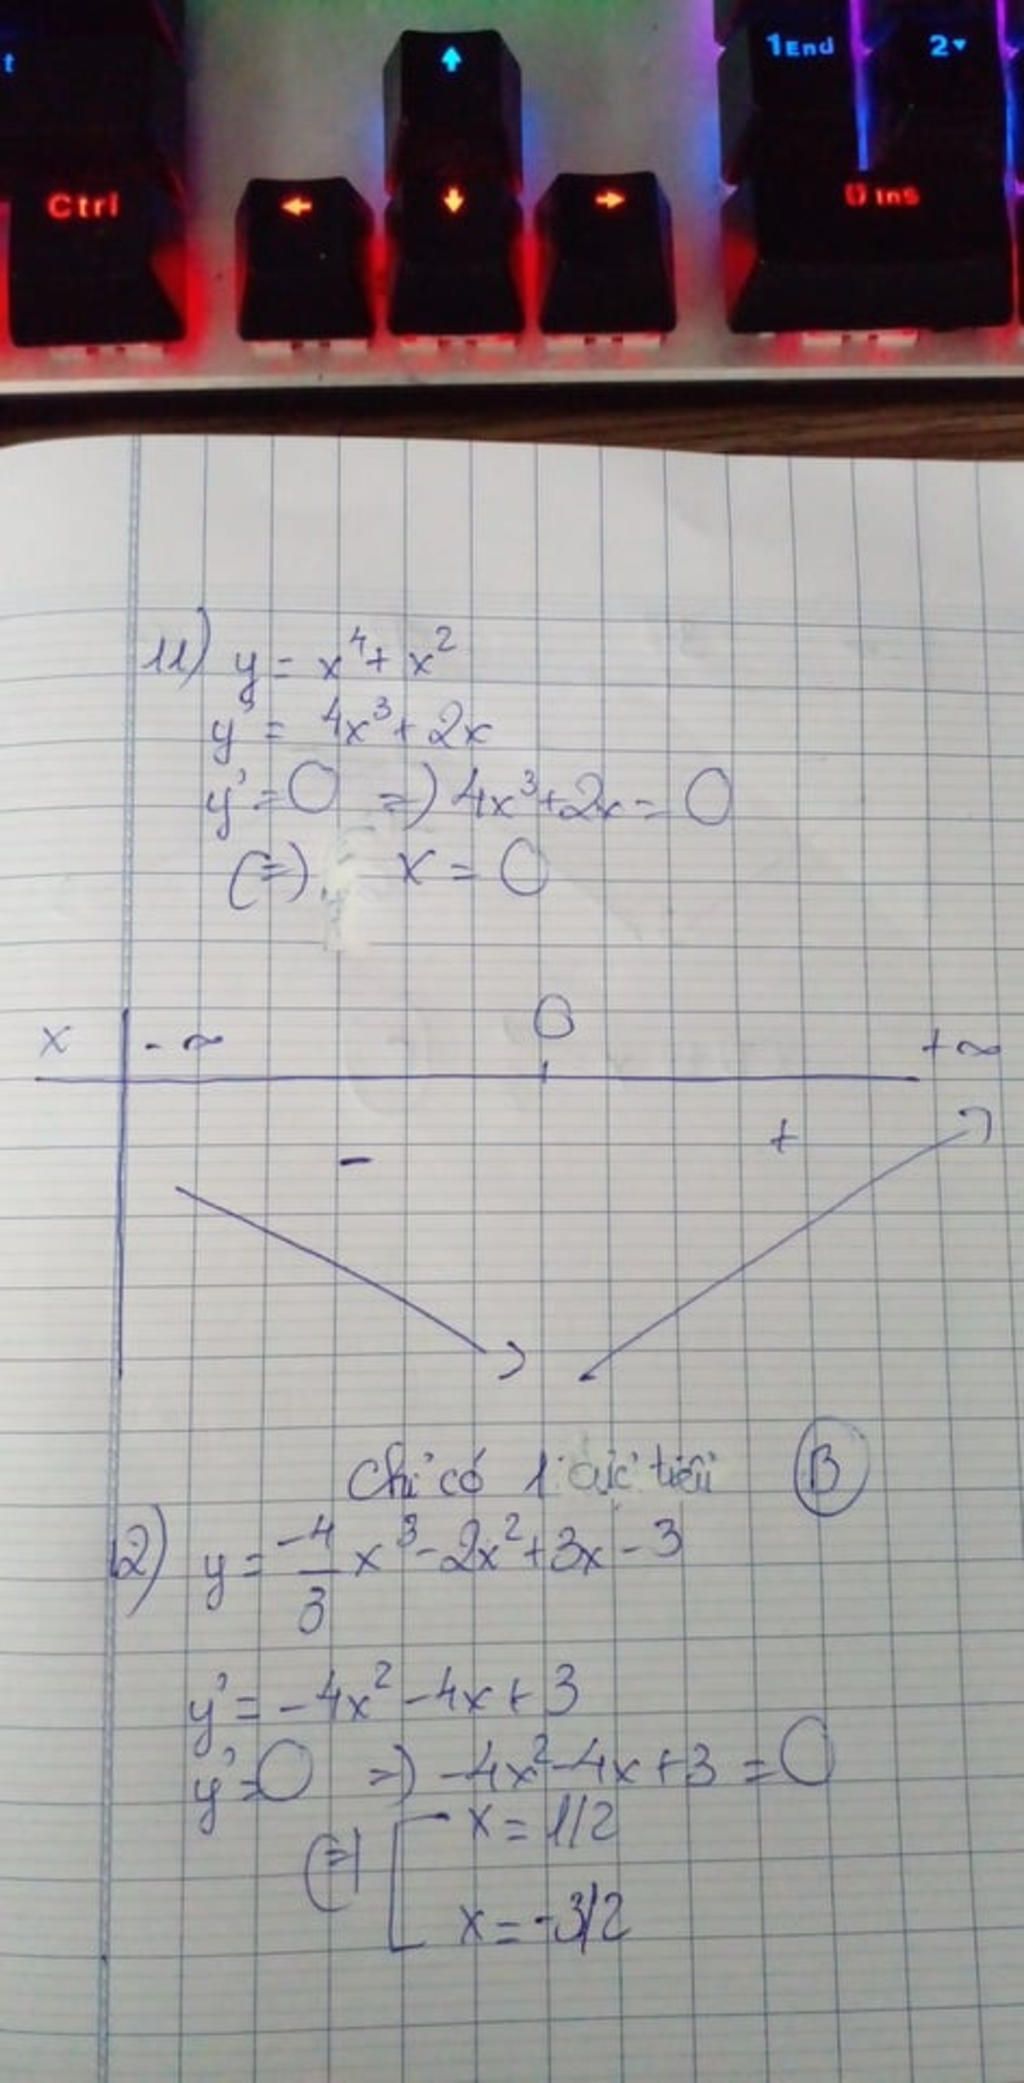 t
↑
1End
2▾
Ctrl
←
↓
→
0 Ins
11) y = x⁴ + x²
y' = 4x³ + 2x
y' = 0 => 4x³ + 2x = 0
(=) x = 0
x | -∞ 0 +∞
- +
Chỉ có 1 cực tiểu (B)
12) y = -4/3 x³ - 2x² + 3x - 3
y' = -4x² - 4x + 3
y' = 0 => -4x² - 4x + 3 = 0
(=) [ x = 1/2
x = -3/2